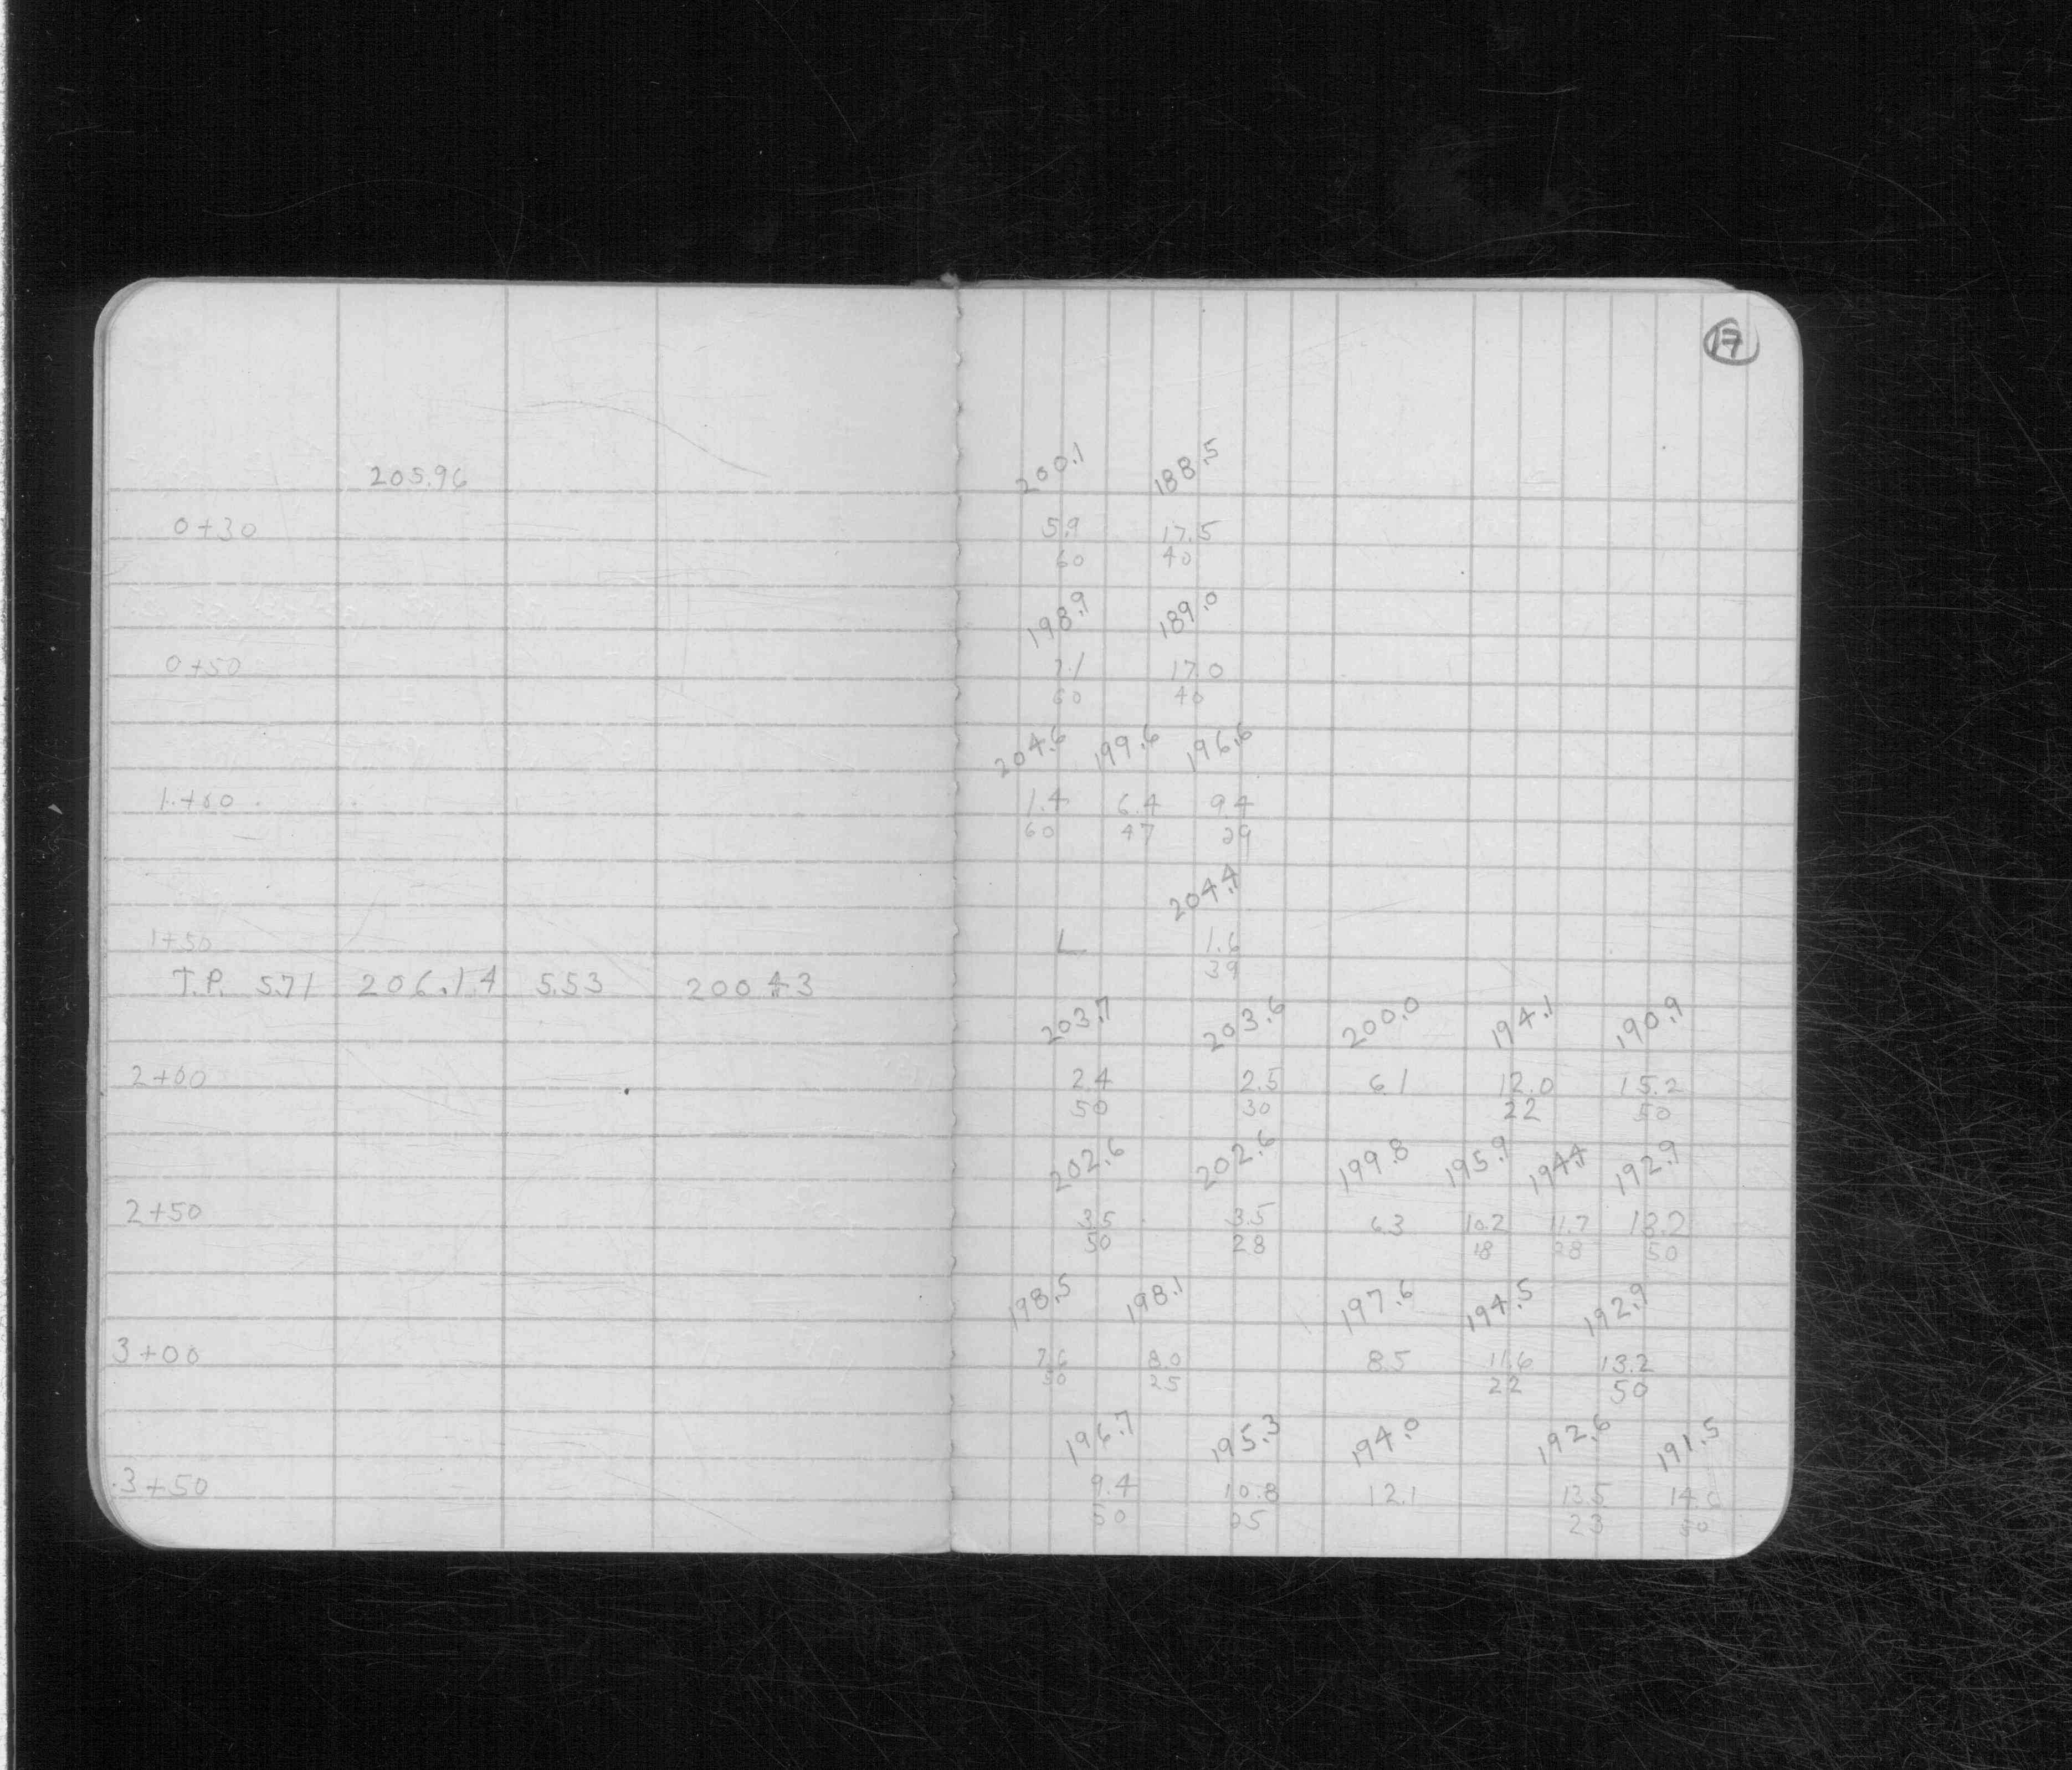 17
205.96 200.1 188.5
0+30 5.9 17.5
60 40
198.9 189.0
0+50 7.1 17.0
60 40
204.6 199.6 196.6
1+00 1.4 6.4 9.4
60 47 29
204.4
1+50 L 1.6
39
T.P. 5.71 206.14 5.53 200.43
203.7 203.6 200.0 194.1 190.9
2+00 2.4 2.5 6.1 12.0 15.2
50 30 22 50
202.6 202.6 199.8 195.9 194.4 192.9
2+50 3.5 3.5 6.3 10.2 11.7 13.2
50 28 18 28 50
198.5 198.1 197.6 194.5 192.9
3+00 7.6 8.0 8.5 11.6 13.2
50 25 22 50
196.7 195.3 194.0 192.6 191.5
3+50 9.4 10.8 12.1 13.5 14.6
50 25 23 50